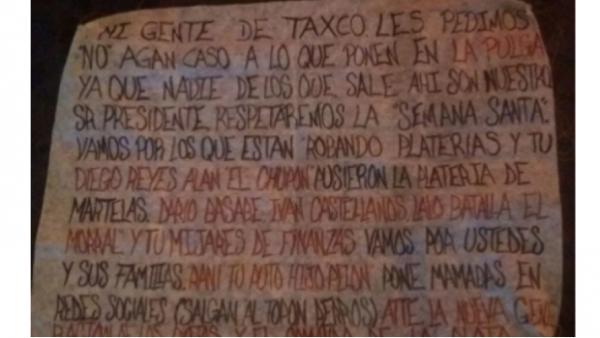 MI GENTE DE TAXCO. LES PEDIMOS
"NO" AGAN CASO A LO QUE PONEN EN LA PULGA
YA QUE NADIE DE LOS QUE SALE AHI SON NUESTRO
SR. PRESIDENTE. RESPETAREMOS LA "SEMANA SANTA".
VAMOS POR LOS QUE ESTAN ROBANDO PLATERIAS Y TU
DIEGO REYES ALAN EL CHOPON PUSIERON LA PLATERIA DE
MARTELAS. DARIO BASABE. IVAN CASTELLANOS. LALO BATALLA EL
MORRAL Y TU MIJARES DE FINANZAS VAMOS POR USTEDES
Y SUS FAMILIAS. DANI TO HIJO PELON PONE MAMADAS EN
REDES SOCIALES (SALGAN AL TOPON PERROS) ATTE LA NUEVA GENE
DE LA PLATA